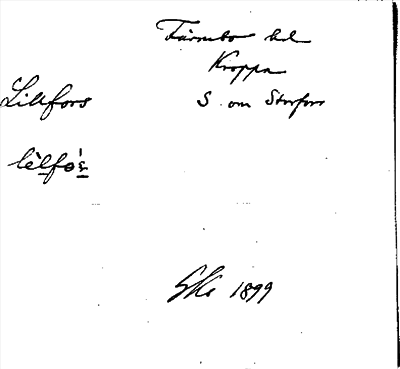 Färnebo hd
Kroppa
Lillfors S. om Storfors
lèlfó's
1899